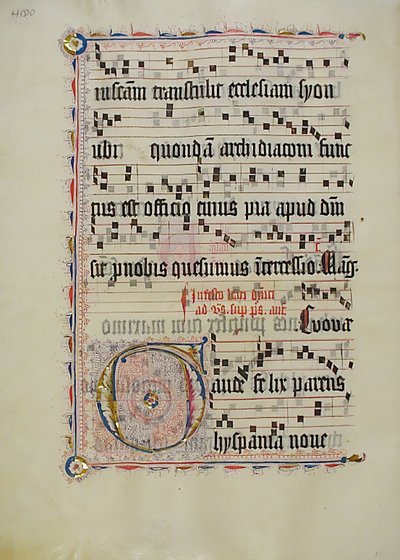 in sc̃am transtulit ecclesiam syon
ubi quondã archidiaconi func
tus est officio cuius pia apud dm̄
sit p nobis quesumus ĩtercessio. Mag.
In festo sc̃i dñici
ad vs. sup. ps. ant.
Euouae
Gaude felix parens
hyspania noue